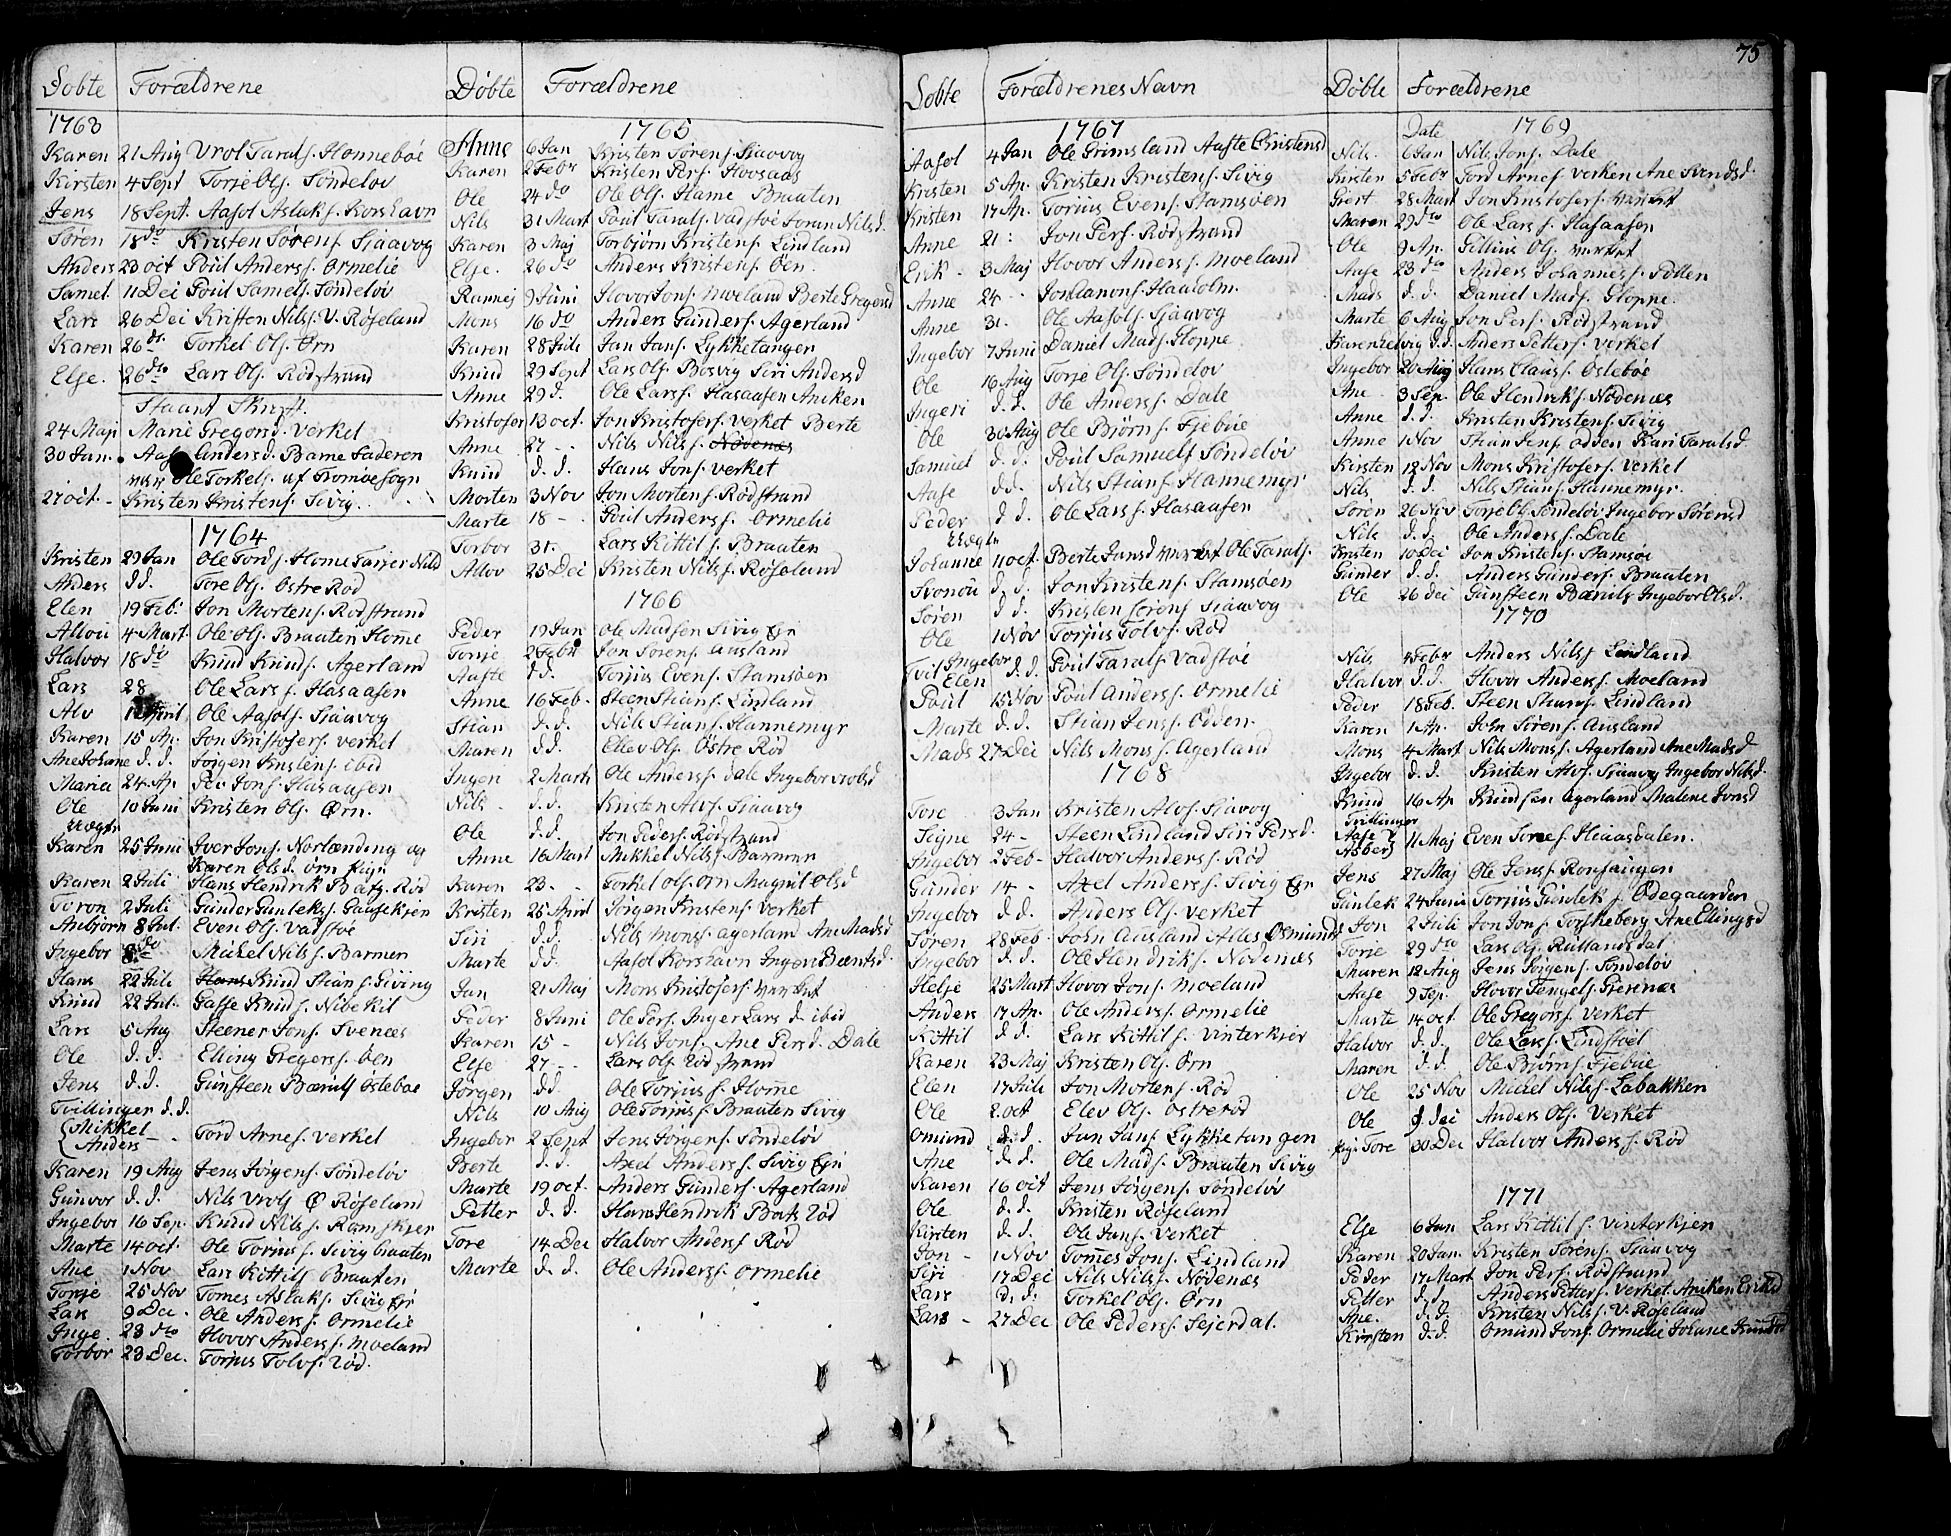 75
Døbte Forældrene
1763
Karen 21 Aug Vrol Tarals. Hønnebøe
Kirsten 4 Sept Torje Ols. Søndeløv
Jens 18 Sept. Aasol Aslaks. Korshavn
Søren 18 do Kristen Sørens. Sjaavog
Anders 23 oct Poul Anderss. Ormelie
Samel 11 Dei Poul Samels. Søndeløv
Lars 26 Dei Kristen Nilss. V. Røseland
Karen 26 do Torkel Ols. Ørn
Else. 26 dto Lars Ols. Rødstrand
Staant Skrift.
24 Maji Marie Gregorsd. Verket
30 Jun. Aase Andersd. Barne Faderen
var Ole Torkels. af Tromøe sogn
27 oct - Kristen Kristens. Sivig.
1764
Kristen 29 Jan Ole Tords. Home Tarjer Nilsd
Anders d.d. Tore Ols. Østre Rød
Elen 19 Feb. Jon Mortens. Rødstrand
Allou 4 Mart. Ole Ols. Braaten Home
Halvor 18 do Knud Knuds. Agerland
Lars 28 Ole Lars s. Hasaasen
Alv 1 April Ole Aasols. Sjaavog
Karen 15 Ap. Jon Kristofers. verket
Ane Johane d.d. Jørgen Kristens. ibid
Maria 24 Ap. Per Jons. Hasaasen
Ole 10 Juni Kristen Ols. Ørn.
uægte
Karen 25 Juni Iver Jons. Norlænding og
Karen Olsd. Ørn Pige
Karen 2 Juli Hans Hendrik Bats. Rød
Toron 2 Juli Gunder Gunleks. Gaasekjen
Anbjørn 8 Jul. Even Ols. Vadstøe
Ingebor 8 do Mickel Nils s. Barmen
Hans 22 Juli Hans Knud Stians. Siving
Knud 22 Jul. Gasse Knuds. Nibekil
Lars 5 Aug Steener Jons. Svenæs
Ole d.d. Elling Gregerss. Øen
Jens d.d. Gunsteen Bærulfs. Østebøe
Tvillinger d.d.
Mikkel
Anders - . Tord Arnes. Verket
Karen 19 Aug Jens Jørgens. Søndeløv
Gunvor d.d. Nils Vrols Ø Røseland
Ingebor 16 Sep. Knud Nilss. Ramskjer
Marte 14 oct. Ole Torjus s. Sivig braaten
Ane 1 Nov Lars Kittils. Braaten
Tonje 25 Nov Tomes Aslaks. Sivig Ejn
Lars 9 Dec. Ole Anders s. Ormelie
Inge. 23 dto Hovor Anders s. Moeland
Torbor 23 Dec. Torjus Tolvs. Rød.
Døbte Forældrene
1765
Anne 6 Jan Kristen Sørens. Sjaavog
Karen 2 Febr Kristen Pers. Hovsaas
Ole 24 do Ole Ols. Hame Braaten
Nils 31 Mart Poul Tarals. Vadstøe Joran Nilsd.
Karen 3 Maj Torbjørn Kristens. Lindland
Else. 26 do Anders Kristens. Øen.
Rannej 9 Juni Hovor Jons. Moeland Berte Gregersd
Mons 16 do Anders Gunders. Agerland
Karen 28 Juli Jan Jans. Lykketangen
Knud 29 Sept Lars Ols. Bosvig Siri Andersd
Anne 29 d. Ole Larss. Hasaasen Aniken
Kristofer 13 oct. Jon Kristofers. Verket Berte
Anne 27 - - Nils Nils s. Nødenæs
Knud d.d. Hans Jons. verket
Morten 3 Nov Jon Mortens. Rødstrand
Marte 18 - . Poul Anders s. Ormelie
Torbor 31. Lars Kittils. Braaten
Allov 25 Dei Kristen Nils s. Røseland
1766
Peder 19 Jan Ole Madsen Sivig Ejn
Tonje 2 Febr Jon Sørens. Ausland
Aaste d.d. Torjus Evens. Stamsøen
Anne 16 Feb. Steen Stians. Lindland
Stian d.d. Nils Stians. Hannemyr
Maren d.d. Ellev Ols. Østre Rød
Ingen 2 Marts Ole Anders s. dale Ingebor Vrolsd
Nils d.d. Kristen Alvs. Sjaavog
Ole d.d. Jon Peders. Rødstrand
Anne 16 Mart Mikkel Nils s. Barmen
Karen 23 - . Torkel Ols. Ørn Magnil Olsd
Kristen 25 April Jørgen Kristens. Verket
Siri d.d. Nils Mons s. agerland Ane Madsd
Marte d.d. Aasol Korshavn Ingeri Bærntsd.
Jan 21 Maj Mons Kristofers. Verket
Peder 8 Juni Ole Pers. Inger Lars d. ibid
Karen 15 - Nils Jons. Ane Persd. Dale
Else 27 - - Lars Ols Rødstrand
Jørgen d.d. Ole Torjus s. Home
Nils 10 Aug Ole Torjus s. Braaten Sivig
Ingebor 2 Sept Jens Jørgens. Søndeløv
Berte d.d. Axel Anders s. Sivig Ejn
Marte 19 oct. Anders Gunders. Agerland
Petter d.d. Hans Hendrik Bats Rød
Tore 14 Dec Halvor Anders s Rød
Marte d.d. Ole Anders s. Ormelie
Døbte Forældrenes Navn
1767
Aasol 4 Jan Ole Grimsland Aaste Christensd
Kristen 5 Ap. Kristen Kristens. Sivig
Kristen 17 Ap. Torjus Evens. Stamsøen
Anne 21: Jon Pers. Rødstrand
Erik - 3 Maj Hovor Anders s. Moeland
Anne 24 - - Jon Canons. Haaholm.
Anne 31. Ole Aasols. Sjaavog
Ingebor 7 Juni Daniel Mads. Gloppe.
Ole 16 Aug Torje Ols. Søndeløv
Ingeri d.d. Ole Anders s. Dale
Ole 30 Aug Ole Bjørns. Fjebue
Samuel d.d. Poul Samuels. Søndeløv
Aase d.d. Nils Stians. Hannemyr
Peder d.d. Ole Lars s. Hasaasen
uægte
Johanne 11 oct. Berte Jansd Verket Ole Tarals.
Svonou d.d. Jon Kristens. Stamsøen
Søren d.d. Kristen Sørens. Sjaavog
Ole 1 Nov Torjus Tolvs. Rød
Tvil Ingebor
Elen d.d. Poul Tarals. Vadstøe
Poul 15 Nov Poul Anders s. Ormelie
Marte d.d. Stian Jens s. Odden.
Mads 27 Dei Nils Mons s. Agerland
1768
Tore 3 Jan Kristen Alvs. Sjavog
Signe 24 - Steen Lindland Siri Persd.
Ingebor 2 Feb - Halvor Anders s. Rød
Gunder 14 - Axel Anders s. Sivig Ejn
Ingebor d.d. Anders Ols. Verket
Søren 28 Feb. John Ausland Alles Osmunds
Ingebor d.d. Ole Hendriks. Nødenæs
Helje 25 Mart Hovor Jons. Moeland
Anders 17 Ap. Ole Anders s. Ormelie
Kittil d.d. Lars Kittil s. Vinterkjer
Karen 23 Maj Kristen Ols. Ørn
Elen 17 Juli Jon Mortens. Rød
Ole 2. oct Elev Ols. Østerød
Omund d.d. Jan Jans. Lykketangen
Ane d.d. Ole Mads. Braaten Sivig
Karen 16 oct Jens Jørgens. Søndeløv
Ole d.d. Kristen Røseland
Kirsten d.d. Ole Jans. Verket
Jon - 1 Nov Tomes Jons. Lindland
Siri 17 Dei Nils Nils s. Nødenæs
Lars d.d. Torkel Ols. Ørn
Lars - 27 Dei Ole Peders s. Sejerdal.
Døbte Forældrene
Date 1769
Nils. 6 Jan Nils Jons. Dale
Kirsten 5 Febr Tord Arnes Verken Ane Svendsd.
Giert 28 Mart Jon Kristofers. Verket
Maren 29 dto Ole Lars s. Hasaasen
Ole 9 Ap. Gillius Ols. Verket
Aase 23 dto Anders Johannes s. Pollen
Mads d.d. Daniel Mads. Gloppe.
Marte 6 Aug Jon Pers. Rødstrand
Karen Helvig d.d. Anders Petters. Verket
Ingebor 20 Aug Hans Clauss. Østebøe
Ane 3 Sep. Ole Hendriks. Nødenæs
Anne d.d. Kristen Kristens. Sivig
Anne 1 Nov Stian Jens. Odden Kari Taralsd.
Kirsten 12 Nov Mons Kristofers. Verket
Nils d.d. Nils Stians. Hannemyr.
Søren 26 Nov Torje Ols. Søndeløv Ingebor Sørensd
Nils d.d. Ole Anders s. Dale
Kristen 10 Dei Jon Kristens. Stamsøe
Gunder d.d. Anders Gunders. Braaten
Ole 26 Dei Gunsteen Bæruls. Ingebor Olsd.
1770
Nils 4 Febr Anders Nils s Lindland
Halvor d.d. Hovor Anders s. Moeland
Peder 18 Feb. Steen Stians. Lindland
Karen 1 Ap. John Sørens. Ausland
Mons 4 Mart Nils Mons s. Agerland Ane Madsd
Ingebor d.d. Kristen Alvs. Sjaavog Ingebor Nilsd.
Knud 16 Ap Knudsen Agerland Malene Jonsd
Tvillinger
Aase
Asber 11 Maj Even Tores. Heiaasdalen.
Jens 27 Maj Ole Jens s. Ronsaugen
Gunlek 24 Juni Torjus Gunlek s. Ødegaarden
Jon 2 Juli Jon Jons. Torskeberg Ane Ellingsd
Torje 29 dto Lars Ols. Røllandsdal
Maren 12 Aug Jens Jørgens. Søndeløv
Aase 9 Sep. Hovor Tengels. Grernæs
Marte 14 oct. Ole Gregors. Verket
Halvor d.d. Ole Lars s. Lindstøl
Maren d.d. Ole Bjørns. Fjebue
Ole 25 Nov Mickel Nils s. Labakken
Ole 9. Dei Anders Ols. Verket
Tore 30 Dec Halvor Anders s. Rød
1771
Else 6 Jan Lars Kittil s. Vinterkjen
Karen 20 Jan. Kristen Sørens. Sjaavog
Peder 17 Mart Jon Pers. Rødstrand
Petter d.d. Anders Petters. Verket. Aniken Eriksd
Ane. d.d. Kristen Nils s. V. Røseland
Kirsten d.d. Omund Jons. Ormelie Johane Knudsd